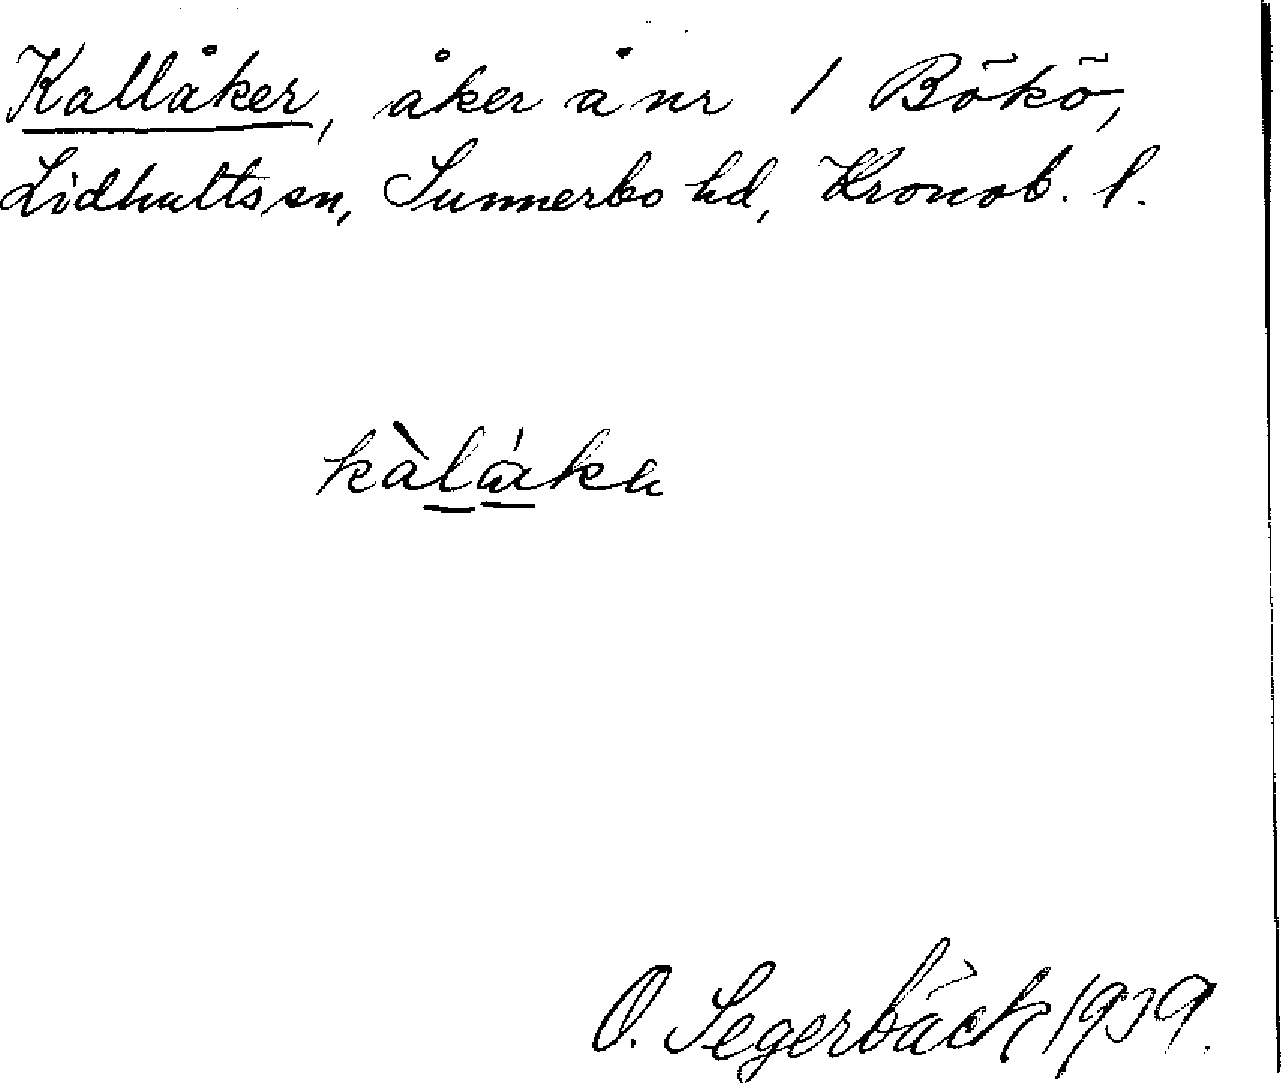 Kallåker, åker å nr 1 Bökö,
Lidhults sn, Sunnerbo hd, Kronob. l.
O. Segerbäck 1939.